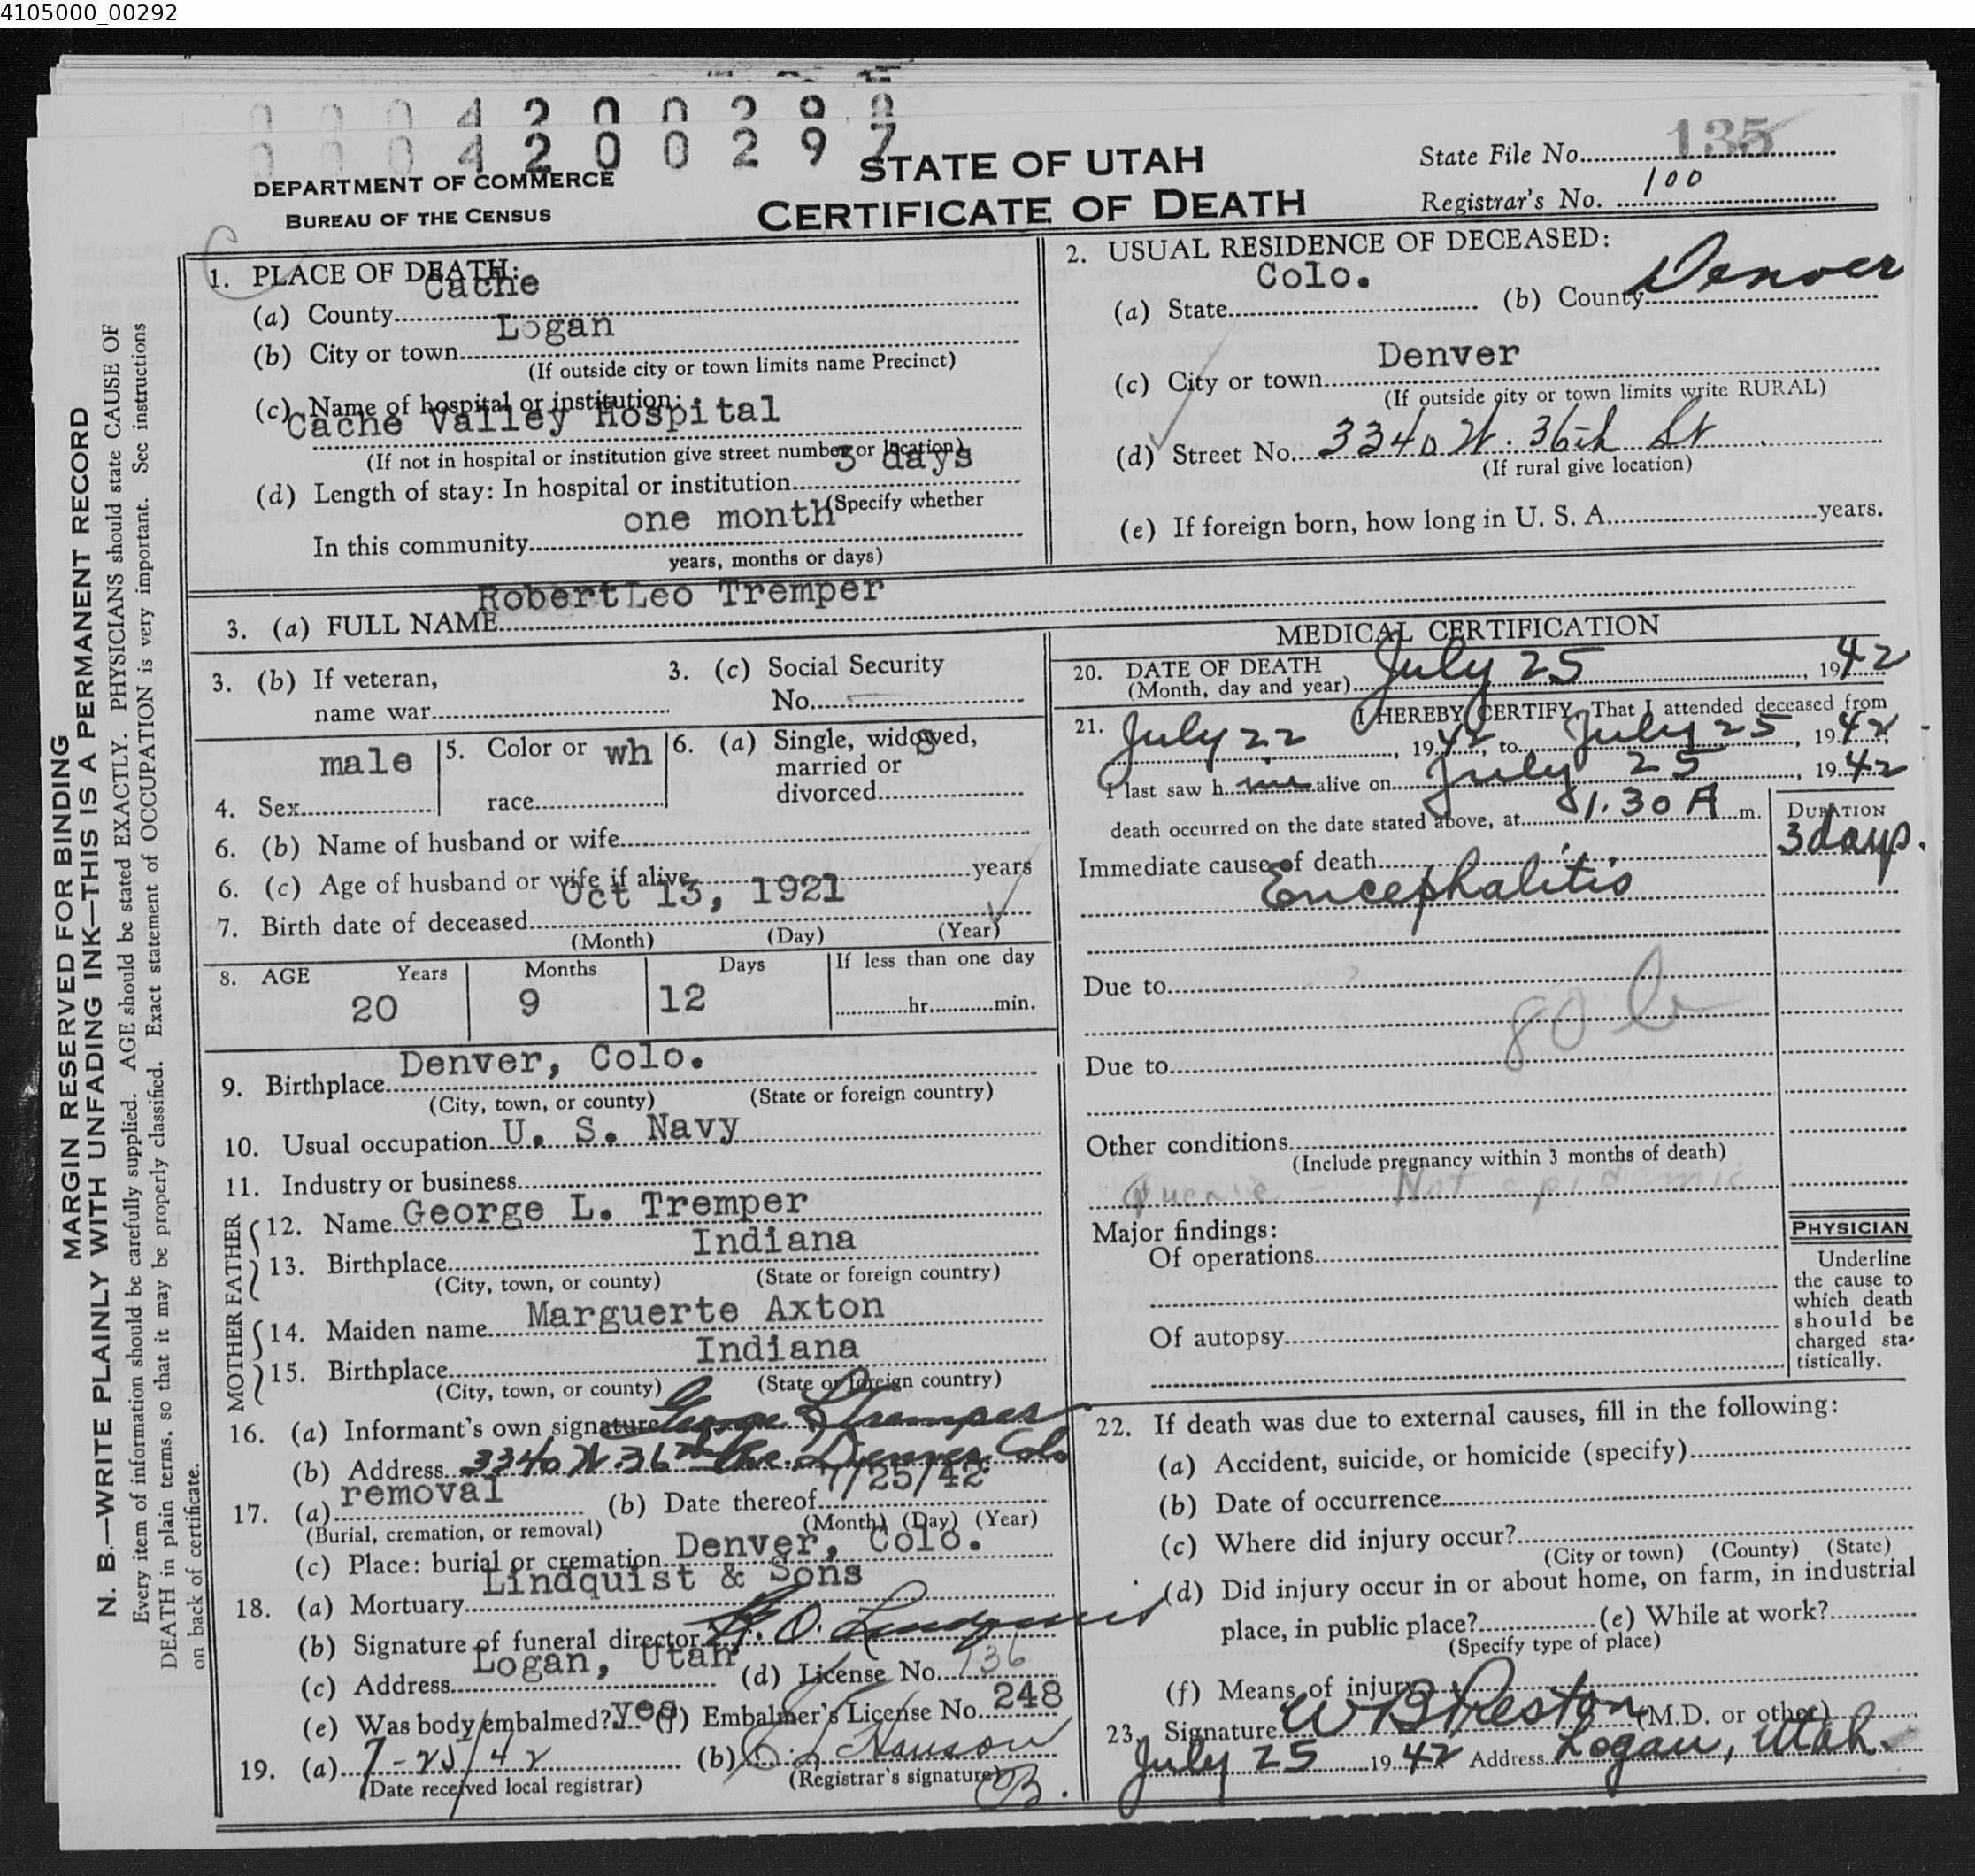 4105000_00292
0 0 0 4 2 0 0 2 9 8
0 0 0 4 2 0 0 2 9 7
DEPARTMENT OF COMMERCE
BUREAU OF THE CENSUS
STATE OF UTAH
CERTIFICATE OF DEATH
State File No. 135
Registrar's No. 100
MARGIN RESERVED FOR BINDING
N. B.—WRITE PLAINLY WITH UNFADING INK—THIS IS A PERMANENT RECORD
Every item of information should be carefully supplied. AGE should be stated EXACTLY. PHYSICIANS should state CAUSE OF
DEATH in plain terms, so that it may be properly classified. Exact statement of OCCUPATION is very important. See instructions
on back of certificate.
1. PLACE OF DEATH:
(a) County Cache
(b) City or town Logan
(If outside city or town limits name Precinct)
(c) Name of hospital or institution:
Cache Valley Hospital
(If not in hospital or institution give street number or location)
(d) Length of stay: In hospital or institution 3 days
(Specify whether
In this community one month
years, months or days)
2. USUAL RESIDENCE OF DECEASED:
(a) State Colo. (b) County Denver
(c) City or town Denver
(If outside city or town limits write RURAL)
(d) Street No. 3340 W. 36th St
(If rural give location)
(e) If foreign born, how long in U. S. A. years.
3. (a) FULL NAME Robert Leo Tremper
3. (b) If veteran,
name war
3. (c) Social Security
No.
4. Sex male
5. Color or
race wh
6. (a) Single, widowed,
married or
divorced S
6. (b) Name of husband or wife
6. (c) Age of husband or wife if alive years
7. Birth date of deceased Oct 13, 1921
(Month) (Day) (Year)
8. AGE Years Months Days If less than one day
20 9 12 hr. min.
9. Birthplace Denver, Colo.
(City, town, or county) (State or foreign country)
10. Usual occupation U. S. Navy
11. Industry or business
FATHER
12. Name George L. Tremper
13. Birthplace Indiana
(City, town, or county) (State or foreign country)
MOTHER
14. Maiden name Marguerte Axton
15. Birthplace Indiana
(City, town, or county) (State or foreign country)
16. (a) Informant's own signature George L Tremper
(b) Address 3340 W. 36th Ave. Denver Colo
17. (a) removal (b) Date thereof 7/25/42
(Burial, cremation, or removal) (Month) (Day) (Year)
(c) Place: burial or cremation Denver, Colo.
18. (a) Mortuary Lindquist & Sons
(b) Signature of funeral director Lindquist
(c) Address Logan, Utah (d) License No. 136
(e) Was body embalmed? yes (f) Embalmer's License No. 248
19. (a) 7-25/42 (b) Hanson
(Date received local registrar) (Registrar's signature) B.
MEDICAL CERTIFICATION
20. DATE OF DEATH
(Month, day and year) July 25, 1942
21. I HEREBY CERTIFY, That I attended deceased from
July 22, 1942, to July 25, 1942,
I last saw him alive on July 25, 1942
death occurred on the date stated above, at 1.30 A m.
DURATION
Immediate cause of death 3 days.
Encephalitis
Due to
80
Due to
Other conditions
(Include pregnancy within 3 months of death)
Not epidemic
Major findings:
Of operations
Of autopsy
PHYSICIAN
Underline
the cause to
which death
should be
charged sta-
tistically.
22. If death was due to external causes, fill in the following:
(a) Accident, suicide, or homicide (specify)
(b) Date of occurrence
(c) Where did injury occur?
(City or town) (County) (State)
(d) Did injury occur in or about home, on farm, in industrial
place, in public place? (e) While at work?
(Specify type of place)
(f) Means of injury
23. Signature W B Preston (M.D. or other)
July 25 1942 Address Logan, Utah.